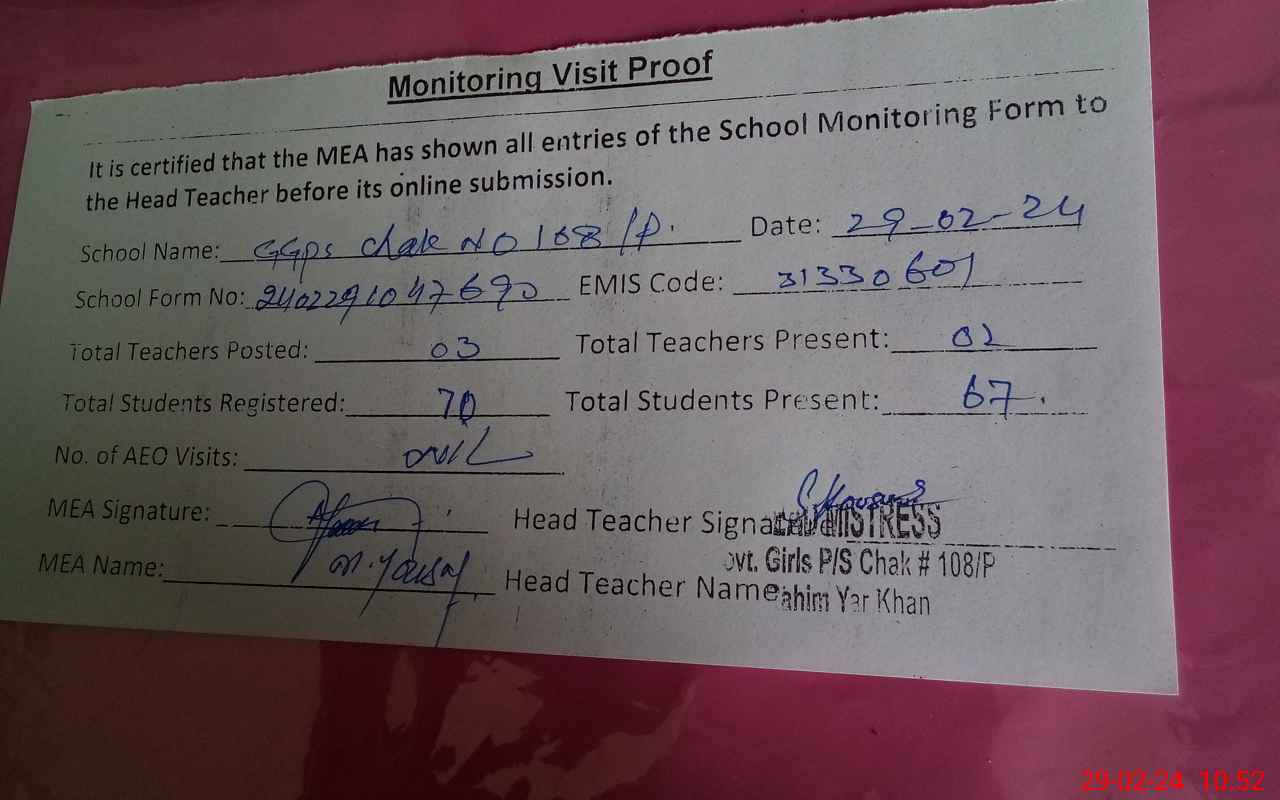 Monitoring Visit Proof
It is certified that the MEA has shown all entries of the School Monitoring Form to
the Head Teacher before its online submission.
School Name: GGPS Chak NO 108/P. Date: 29-02-24
School Form No: 2402291047690 EMIS Code: 31330601
Total Teachers Posted: 03 Total Teachers Present: 02
Total Students Registered: 70 Total Students Present: 67.
No. of AEO Visits:
MEA Signature: Head Teacher Signat
MISTRESS
ovt. Girls P/S Chak # 108/P
MEA Name: M. Yousaf Head Teacher Name
ahim Yar Khan
29-02-24 10:52